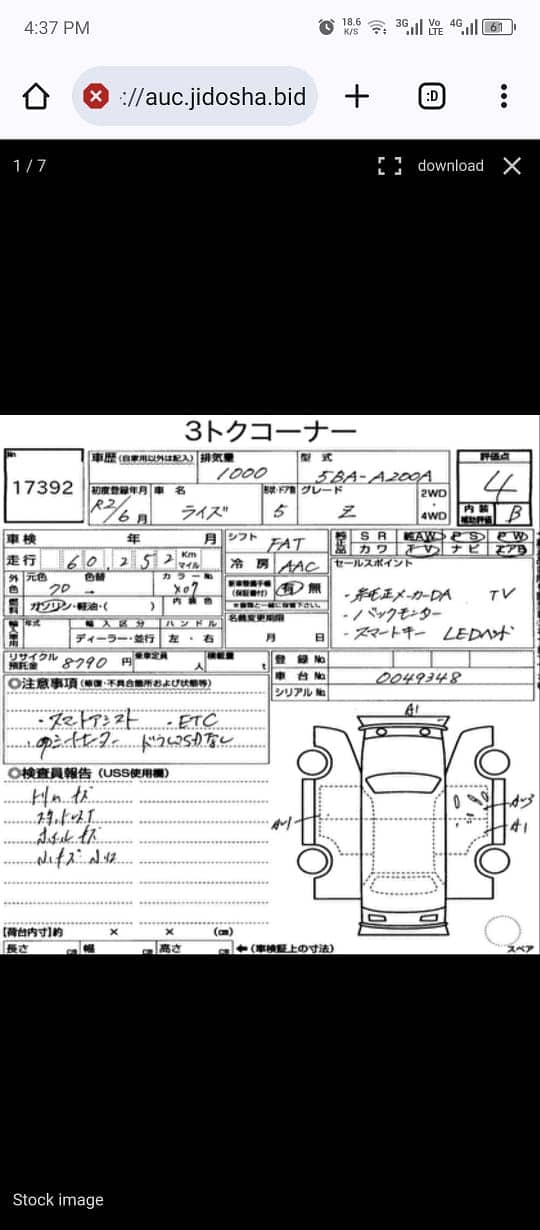 4:37 PM 18.6 K/S 3G Vo LTE 4G 61
://auc.jidosha.bid :D
1 / 7 download
3トクコーナー
No 車歴 (自家用以外は記入) 排気量 型 式 評価点
17392 1000 5BA-A200A 4
初度登録年月 車 名 形状・ドア数 グレード 2WD ・ 4WD
R2/6月 ライズ 5 Z 内装補助評価 B
車検 年 月 シフト FAT 純正品 S R AW P S P W
走行 60,252 Km マイル 冷 房 AAC カ ワ T V ナ ビ エアB
外色 元色 色替 カラーNo セールスポイント
70 → X07 有 無
燃料 ガソリン・軽油・( ) 内装色 ・純正メーカーDA TV
輸入車用 年式 輸 入 区 分 ハ ン ド ル 名義変更期限 ・バックモニター
ディーラー・並行 左 ・ 右 月 日 ・スマートキー LEDヘッド
リサイクル預託金 8790 円 乗車定員 人 積載量 t 登 録 No
車 台 No 0049348
シリアル No
◎注意事項 (修復・不具合箇所および状態等)
・スマートアシスト ・ETC
A1
◎検査員報告 (USS使用欄)
A1
【荷台内寸】約 × × (cm)
長さ cm 幅 cm 高さ cm ←(車検証上の寸法) スペア
Stock image